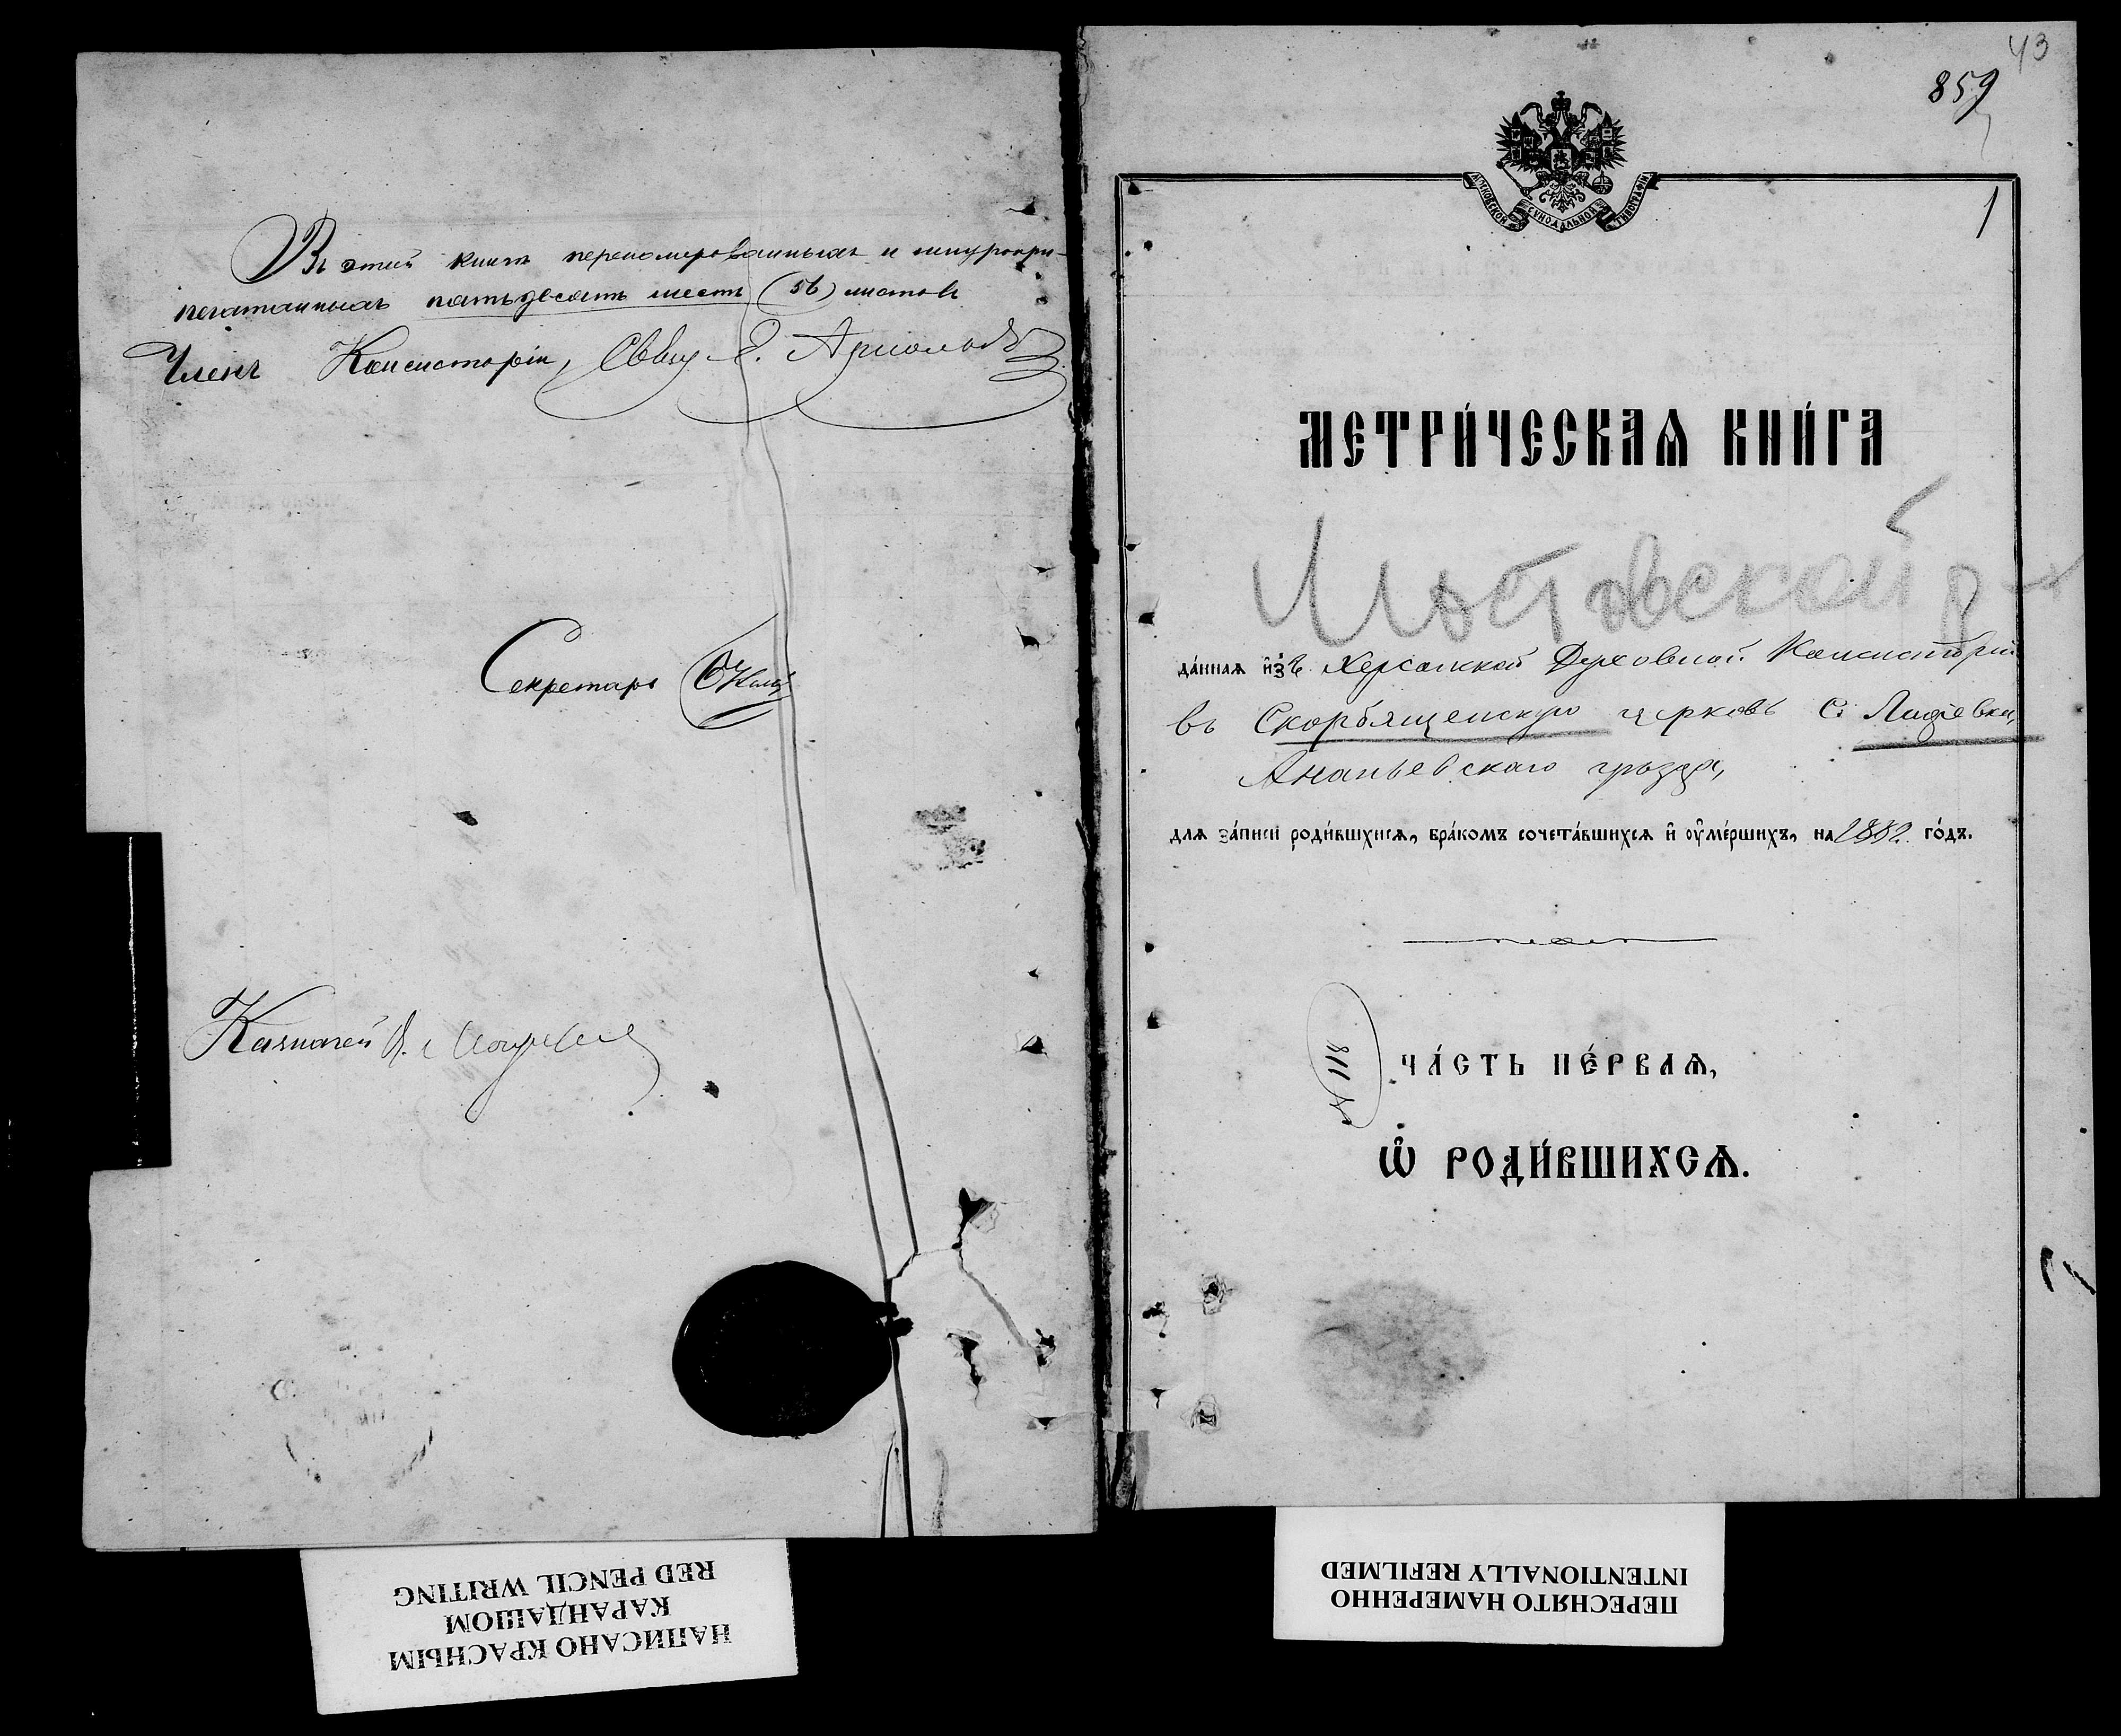 Въ этой книгѣ перенумерованныхъ и шнуропри-
печатанныхъ пятьдесятъ шесть (56) листовъ
Членъ Консисторіи,
Секретарь
Казначей
НАПИСАНО КРАСНЫМ
КАРАНДАШОМ
RED PENCIL WRITING
43
859
1
МОСКОВСКОЙ СѴНОДАЛЬНОЙ ТИПОГРАФІИ
МЕТРИ́ЧЕСКАѦ КНИ́ГА
Мостовской р-н
да́нная изъ Херсонской Духовной Консисторіи
въ Скорбященскую церковь С. Лидіевки,
Ананьевскаго уѣзда,
для за́писи роди́вшихсѧ, бра́комъ сочета́вшихсѧ и оуме́ршихъ, на 1882. го́дъ.
№ 118
ЧА́СТЬ ПЕ́РВАѦ,
Ѡ РОДИ́ВШИХСѦ.
ПЕРЕСНЯТО НАМЕРЕННО
INTENTIONALLY REFILMED